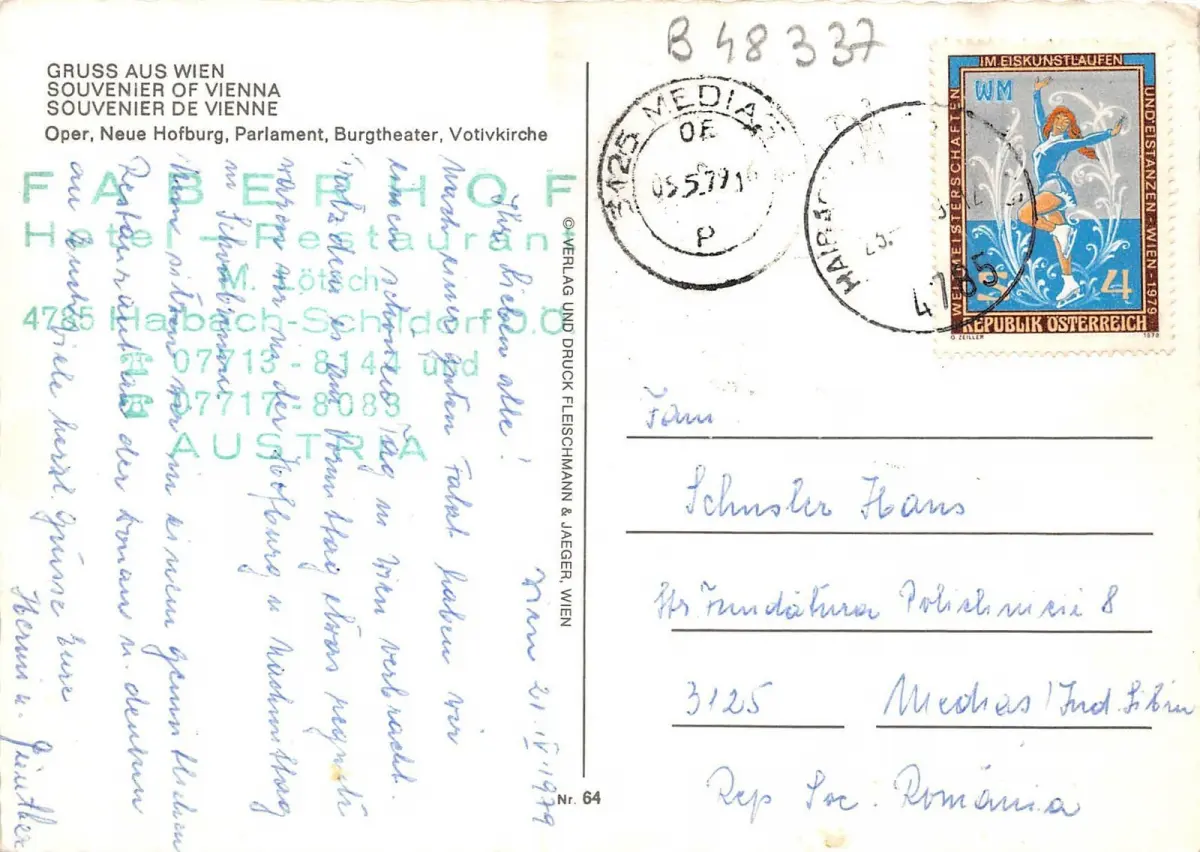 B 48337
GRUSS AUS WIEN
SOUVENIER OF VIENNA
SOUVENIER DE VIENNE
Oper, Neue Hofburg, Parlament, Burgtheater, Votivkirche
FABERHOF
Hotel - Restaurant
M. Lötsch
4785 Haibach-Schildorf O.Ö.
07713 - 8144 und
07717 - 8083
AUSTRIA
Wien 21.IV.1979
Ihr Lieben alle!
Nach einer guten Fahrt haben wir
einen schönen Tag in Wien verbracht.
Trotzdem es am Vormittag etwas regnete
waren wir in der Hofburg u Nachmittag
in Schönbrunn.
Nun sitzen wir in einem gemütlichen
Restaurant an der Donau u. denken
an Euch. Viele herzl. Grüsse Eure
Hermi u. Günther
© VERLAG UND DRUCK FLEISCHMANN & JAEGER, WIEN
Nr. 64
3125 MEDIAȘ
OF
05.5.79
P
HAIBA
4785
IM EISKUNSTLAUFEN
WELTMEISTERSCHAFTEN
UND EISTANZEN-WIEN-1979
WM
S 4
REPUBLIK ÖSTERREICH
O. ZEILLER
1979
Fam
Schusler Hans
Str Fundătura Politehnicii 8
3125 Medias / Jud. Sibiu
Rep Soc. România